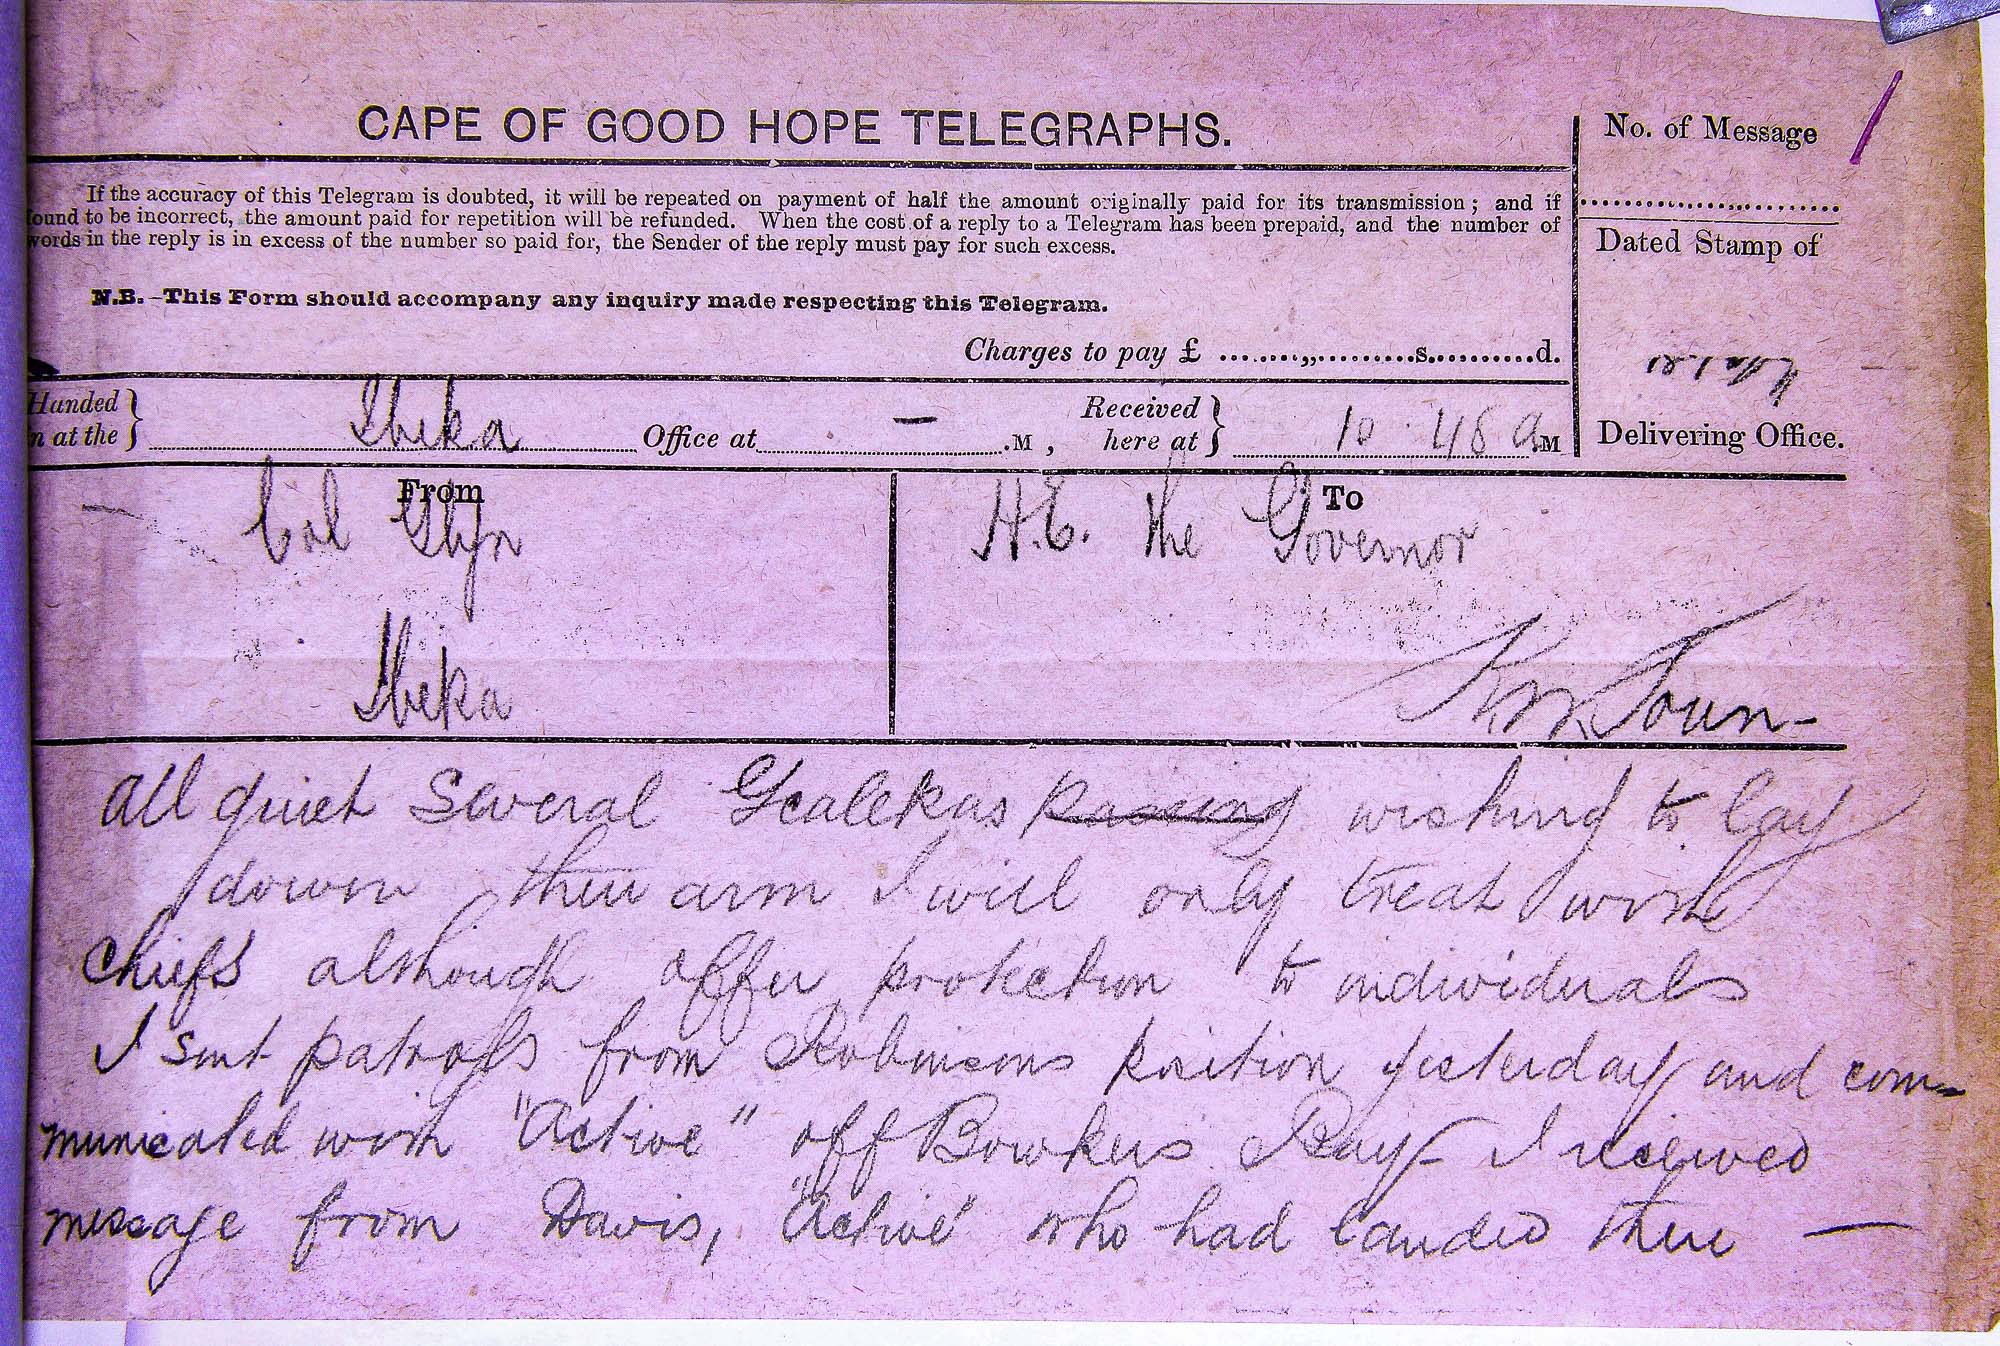 CAPE OF GOOD HOPE TELEGRAPHS.
No. of Message
If the accuracy of this Telegram is doubted, it will be repeated on payment of half the amount originally paid for its transmission; and if
found to be incorrect, the amount paid for repetition will be refunded. When the cost of a reply to a Telegram has been prepaid, and the number of
words in the reply is in excess of the number so paid for, the Sender of the reply must pay for such excess.
Dated Stamp of
N.B.—This Form should accompany any inquiry made respecting this Telegram.
Charges to pay £ ........„..........s..........d.
Delivering Office.
Handed
in at the } Ibeka Office at — .M, Received here at } 10.48 a.M
From
Col Glyn
Ibeka
To
H.E. The Governor
KWTown-
All quiet Several Gcalekas passing wishing to lay
down their arm I will only treat with
chiefs although offer protection to individuals
I sent patrols from Robinsons position yesterday and com=
municated with "Active" off Bowkers Bay- I received
message from Davis, "Active" who had landed there —